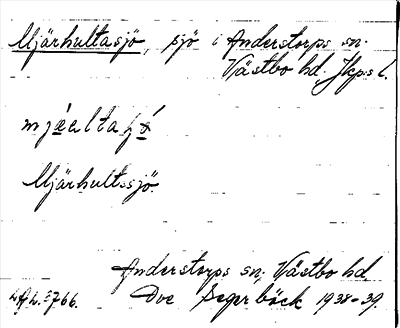 Mjärhultasjö, sjö i Anderstorps sn.
Västbo hd. Jkps l.
Mjärhultssjö.
Anderstorps sn, Västbo hd
Ove Segerbäck 1938-39.